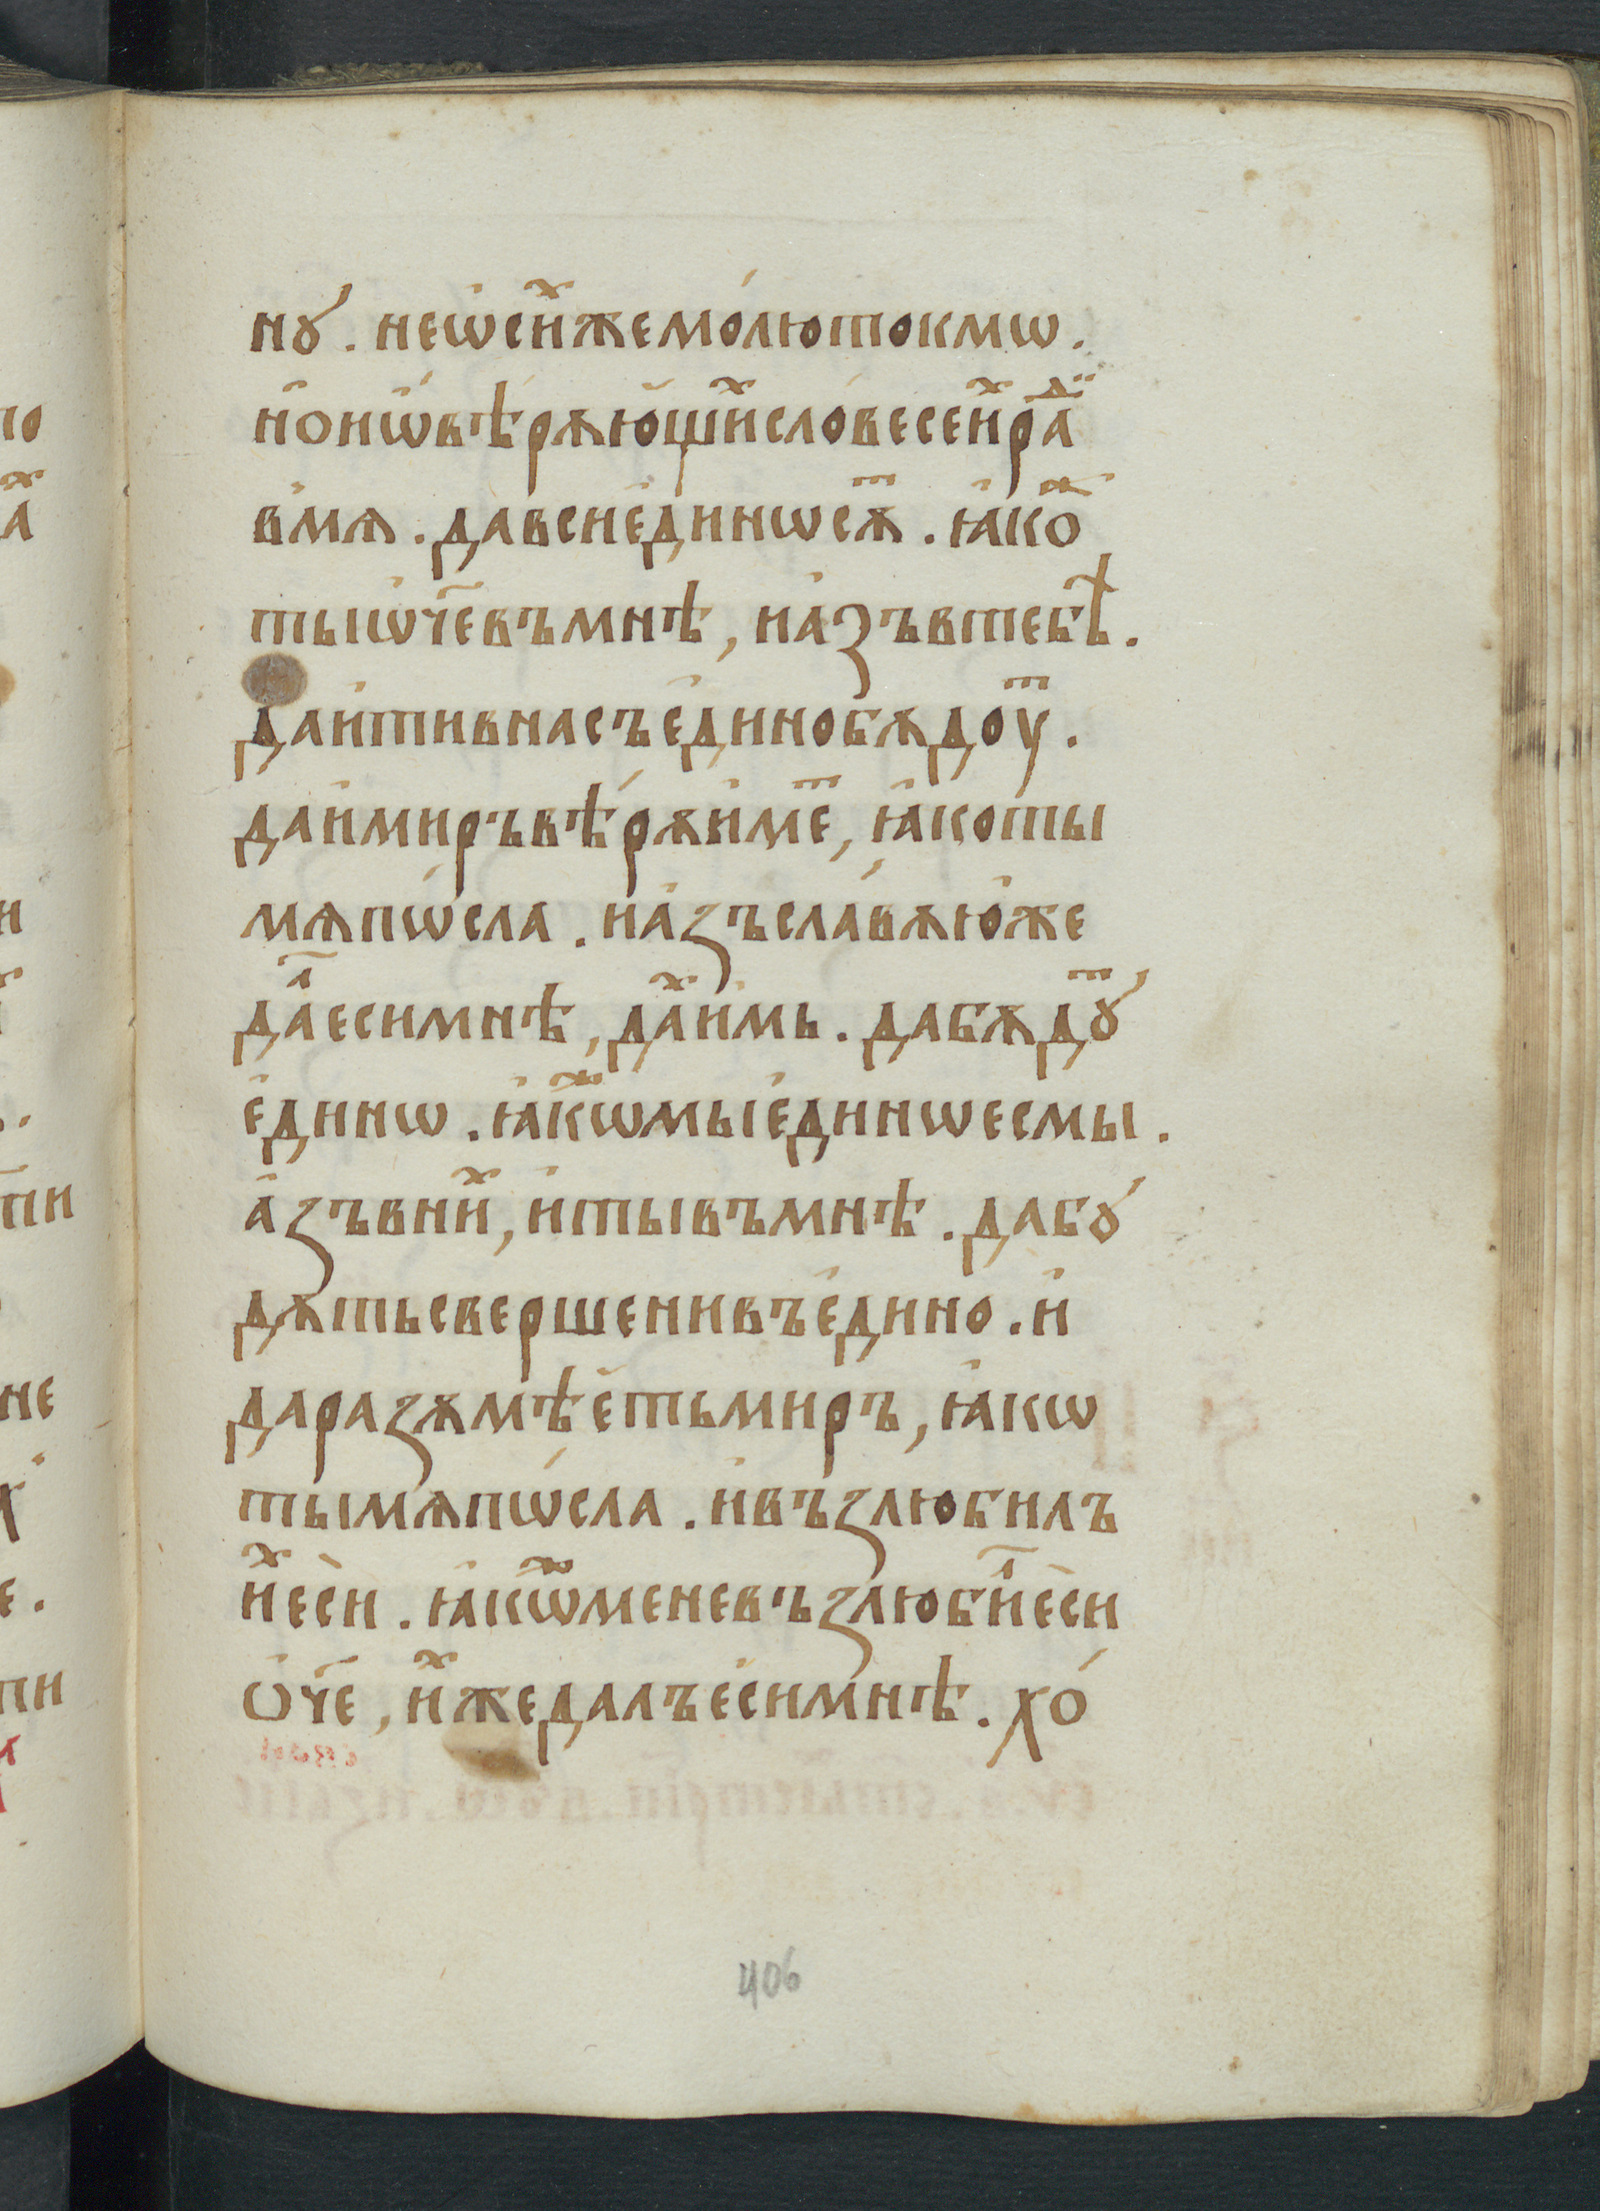 нꙋ́ . неѡ҆си́ⷯжемо́лютокмѡ .
но҆иѡ҆вѣ́рѫю҆щиⷯсло́весеи҆ⷯраⷣ
вмѧ . давсие҆динѡсѫⷮ . ꙗ҆коⷤ
тыѡ҆ч҃евъмнѣ , иа҆зъвтебѣ̀ .
даи҆тивнасъе҆динобѫдоуⷮ .
даи҆миръвѣ́рѫи҆меⷮ , ꙗ҆коты
мѧпѡ́сла . иа҆зъсла́вѫю҆же
даⷧ҇есимнѣ , даⷯи҆мь . дабѫдꙋ́ⷮ
е҆динѡ . ꙗ҆кѡⷤмые҆динѡесмы .
а҆зъвниⷯ , и҆тывъмнѣ . дабꙋ́
дѫтьсвершенивъе҆дино . и҆
даразѫмѣе҆тьмиръ , ꙗ҆кѡ
тымѧпѡ́сла . и҆възлюбилъ
иⷯе҆си . ꙗ҆кѡⷤменевъзлюбиⷧ҇е҆си
ѻ҆ч҃е , и҆ⷯжедалъе҆симнѣ . хо́
406